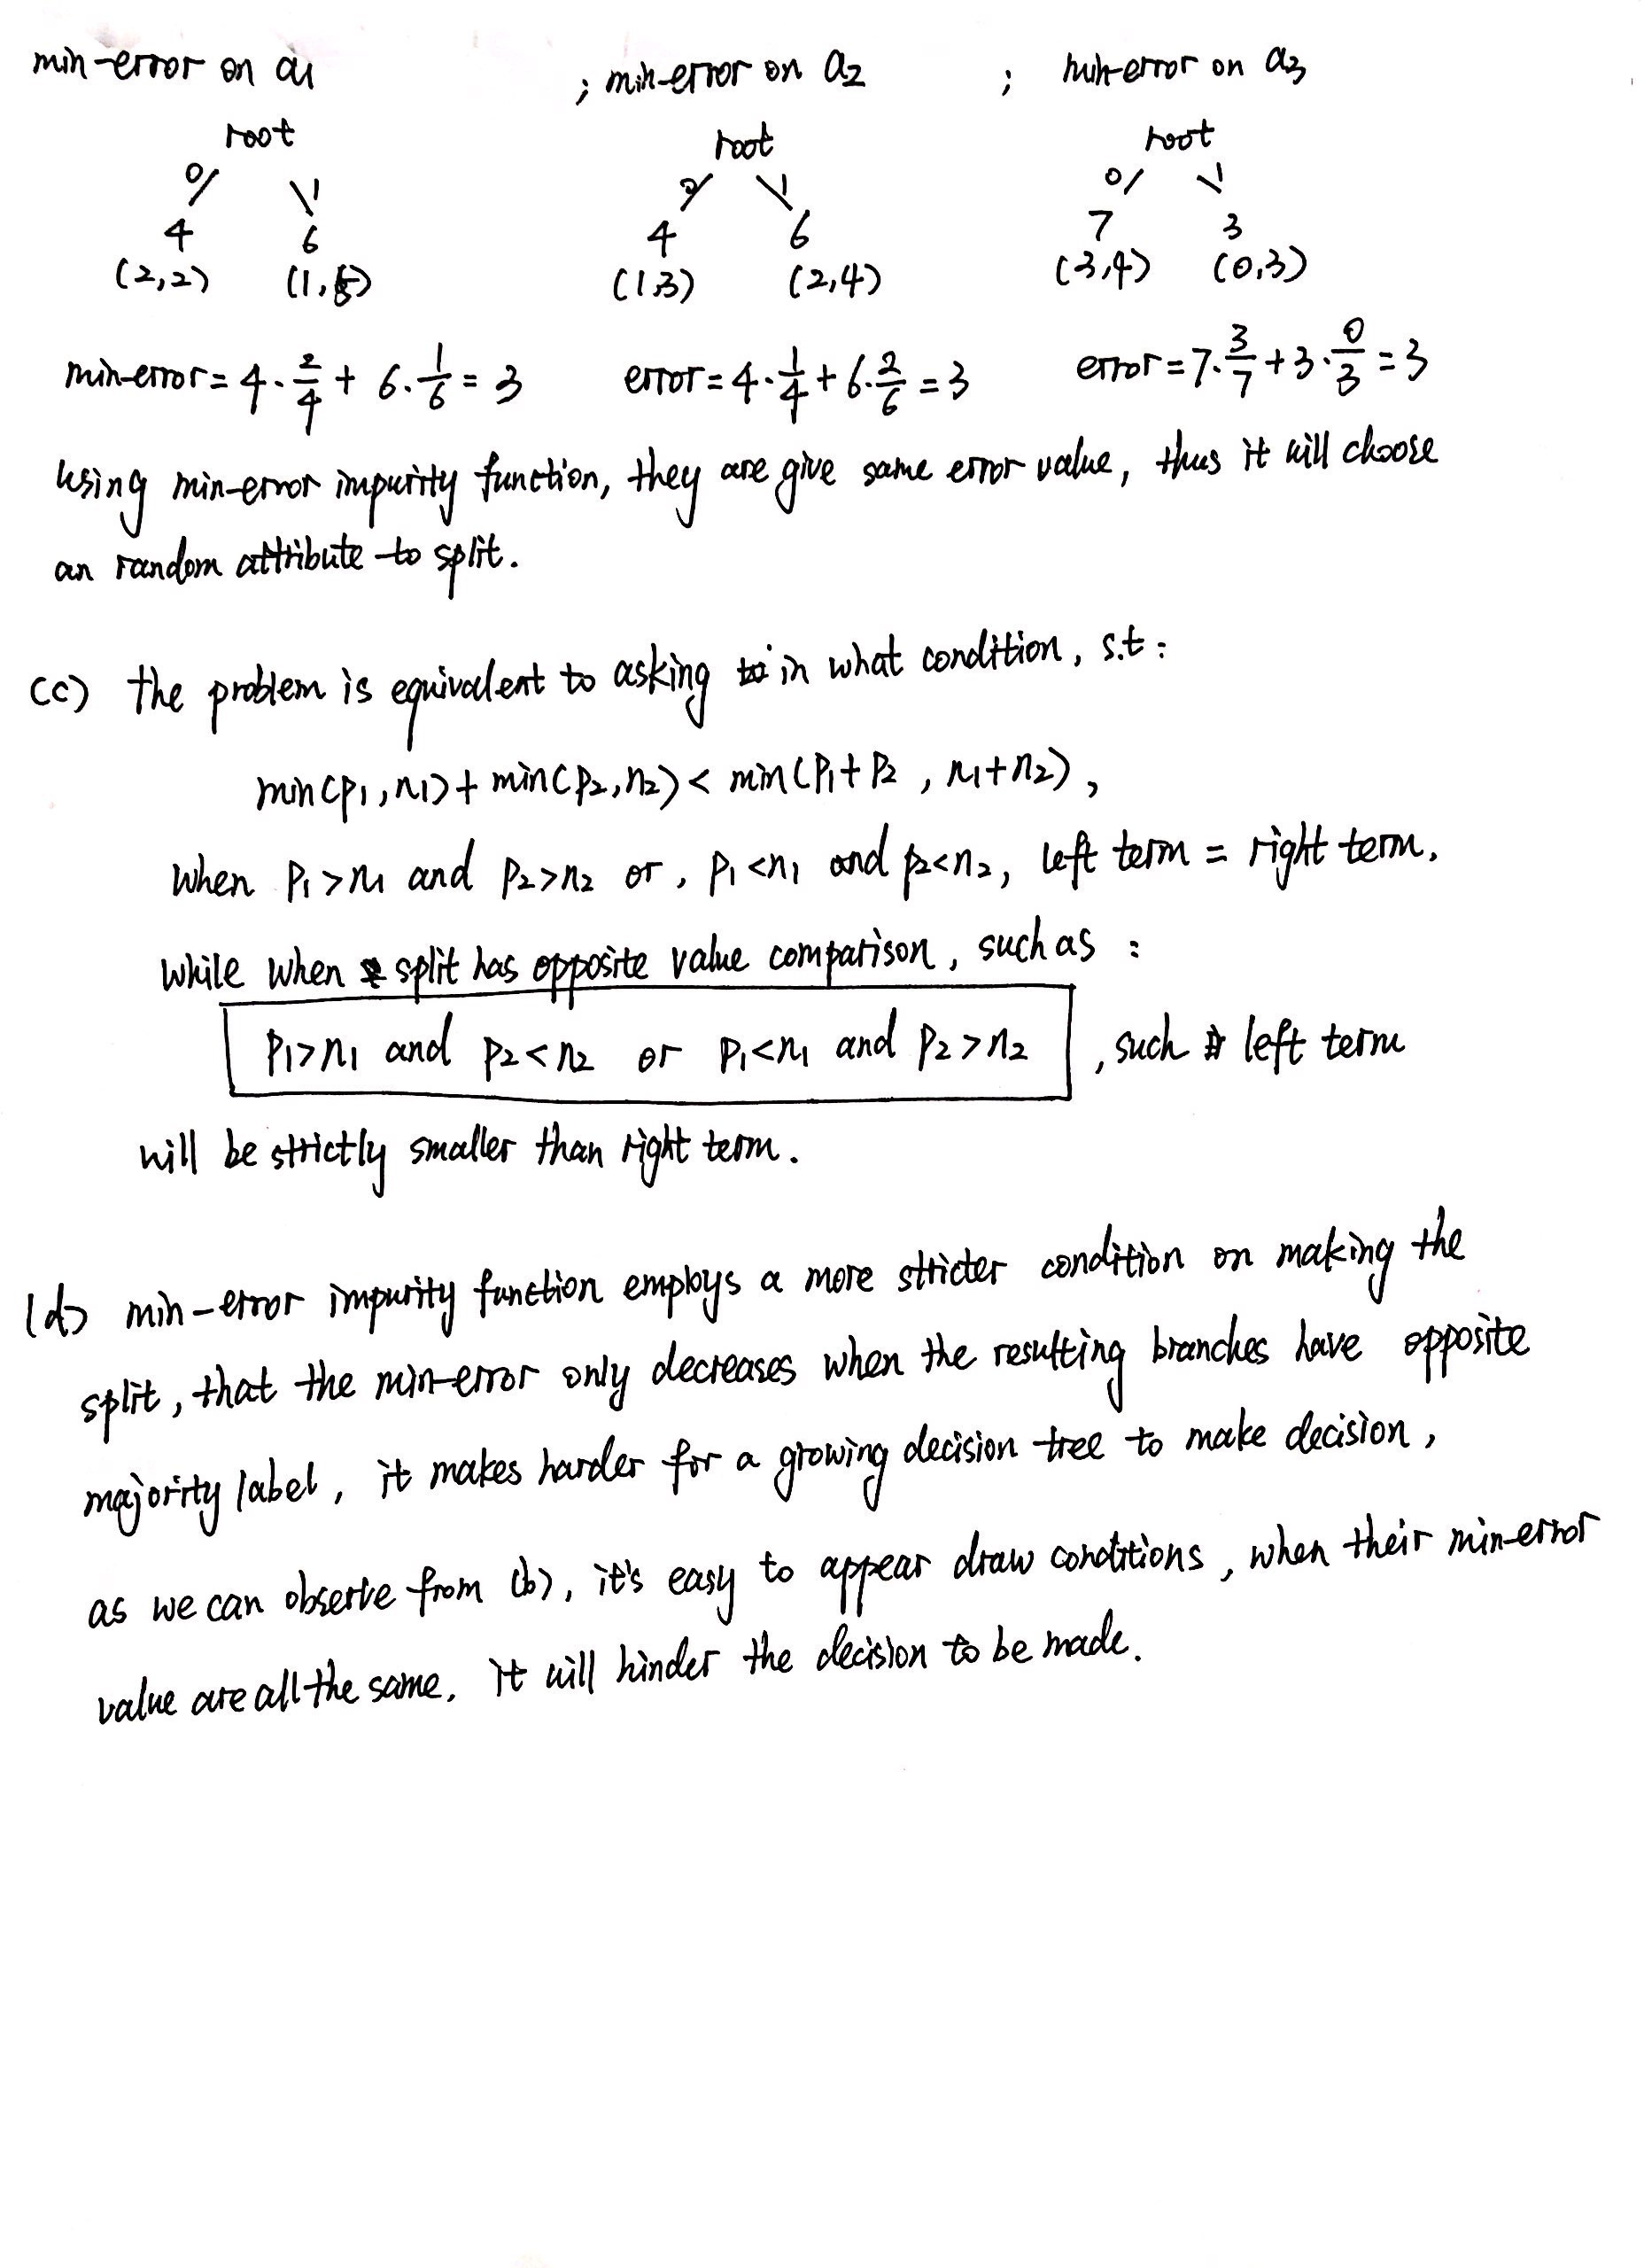 min-error on a1 ; min-error on a2 ; min-error on a3
root root root
0 1 0 1 0 1
4 6 4 6 7 3
(2,2) (1,5) (1,3) (2,4) (3,4) (0,3)
min-error = 4·2/4 + 6·1/6 = 3 error = 4·1/4 + 6·2/6 = 3 error = 7·3/7 + 3·0/3 = 3
Using min-error impurity function, they are give same error value, thus it will choose
an random attribute to split.
(c) the problem is equivalent to asking in what condition, s.t:
min(p1,n1) + min(p2,n2) < min(p1+p2 , n1+n2),
when p1>n1 and p2>n2 or, p1<n1 and p2<n2, left term = right term,
while when split has opposite value comparison, such as :
p1>n1 and p2<n2 or p1<n1 and p2>n2 , such left term
will be strictly smaller than right term.
(d) min-error impurity function employs a more stricter condition on making the
split, that the min-error only decreases when the resulting branches have opposite
majority label, it makes harder for a growing decision tree to make decision,
as we can observe from (b), it's easy to appear draw conditions, when their min-error
value are all the same. it will hinder the decision to be made.